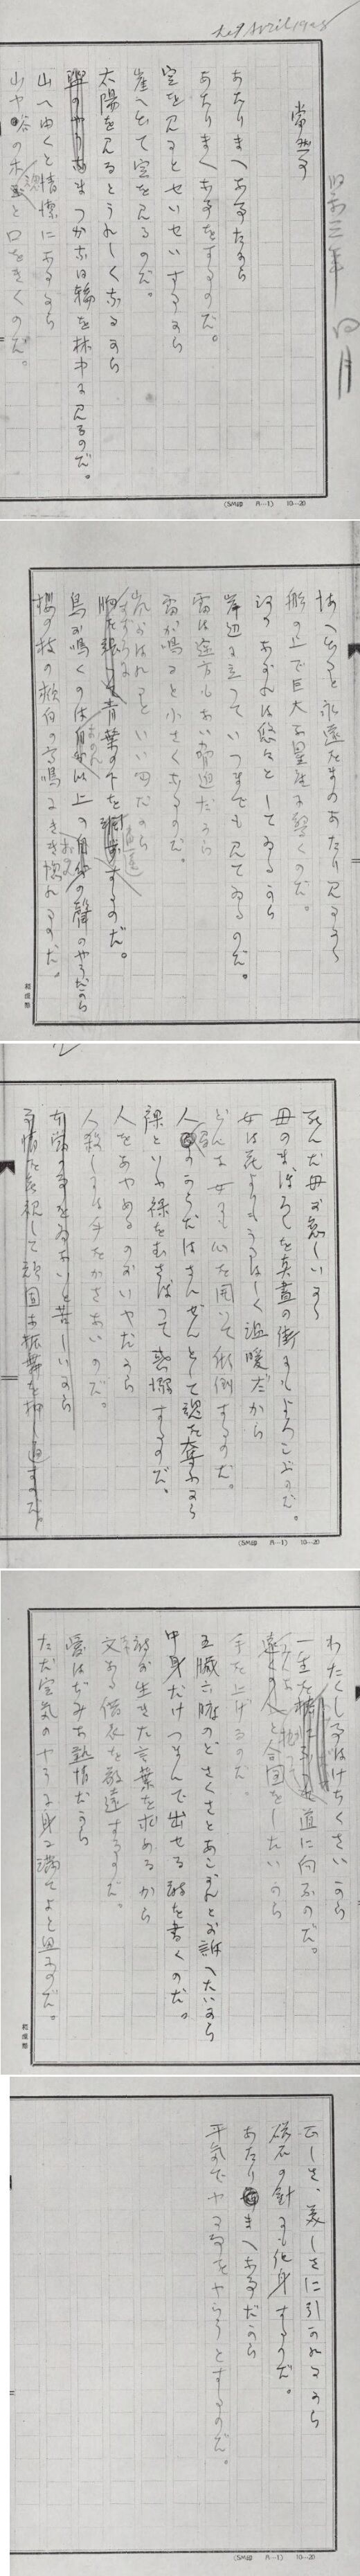 le 9 Avril 1928
昭和三年 四月
当然事
あたりまへな事だから
あたりまへな事をするのだ。
空を見るとせいせいするから
崖へ出て空を見るのだ。
太陽を見るとうれしくなるから
盥のやうなまつかな日輪を林中に見るのだ。
山へゆくと清潔になるから
山や谷の木魂と口をきくのだ。
(SM印 A—1) 10—20
海へ出ると永遠をまのあたり見るから
船の上で巨大な星座に驚くのだ。
河のながれは悠々としてゐるから
岸辺に立つていつまでも見てゐるのだ。
雷は途方もない脅迫だから
雷が鳴ると小さくなるのだ。
嵐がはれるといい匂だから
青葉の下を逍遥するのだ。
鳥が鳴くのはおのれ以上のおのれの聲のやうだから
桜の枝の頬白の高鳴きにきき惚れるのだ。
死んだ母が恋しいから
母のまぼろしを真昼の街にもよろこぶのだ。
女は花よりもうるはしく温暖だから
どんな女にも心を開いて傾倒するのだ。
人間のからだはさんぜんとして魂を奪ふから
裸といふ裸をむさぼつて惑溺するのだ。
人をあやめるのがいやだから
人殺しには手をかさないのだ。
(SM印 A—1) 10—20
わたくし事はけちくさいから
一生を棒にふつて道に向ふのだ。
みんなと合図をしたいから
手を上げるのだ。
五臓六腑のどさくさとあこがれとが訴へたいから
中身だけつまんで出せる詩を書くのだ。
詩が生きた言葉を求めるから
文ある借衣を敬遠するのだ。
愛はぢみな熱情だから
ただ空気のやうに身に満てよと思ふのだ。
正しさ、美しさに引かれるから
磁石の針にも化身するのだ。
あたりまへな事だから
平気でやる事をやらうとするのだ。
(SM印 A—1) 10—20